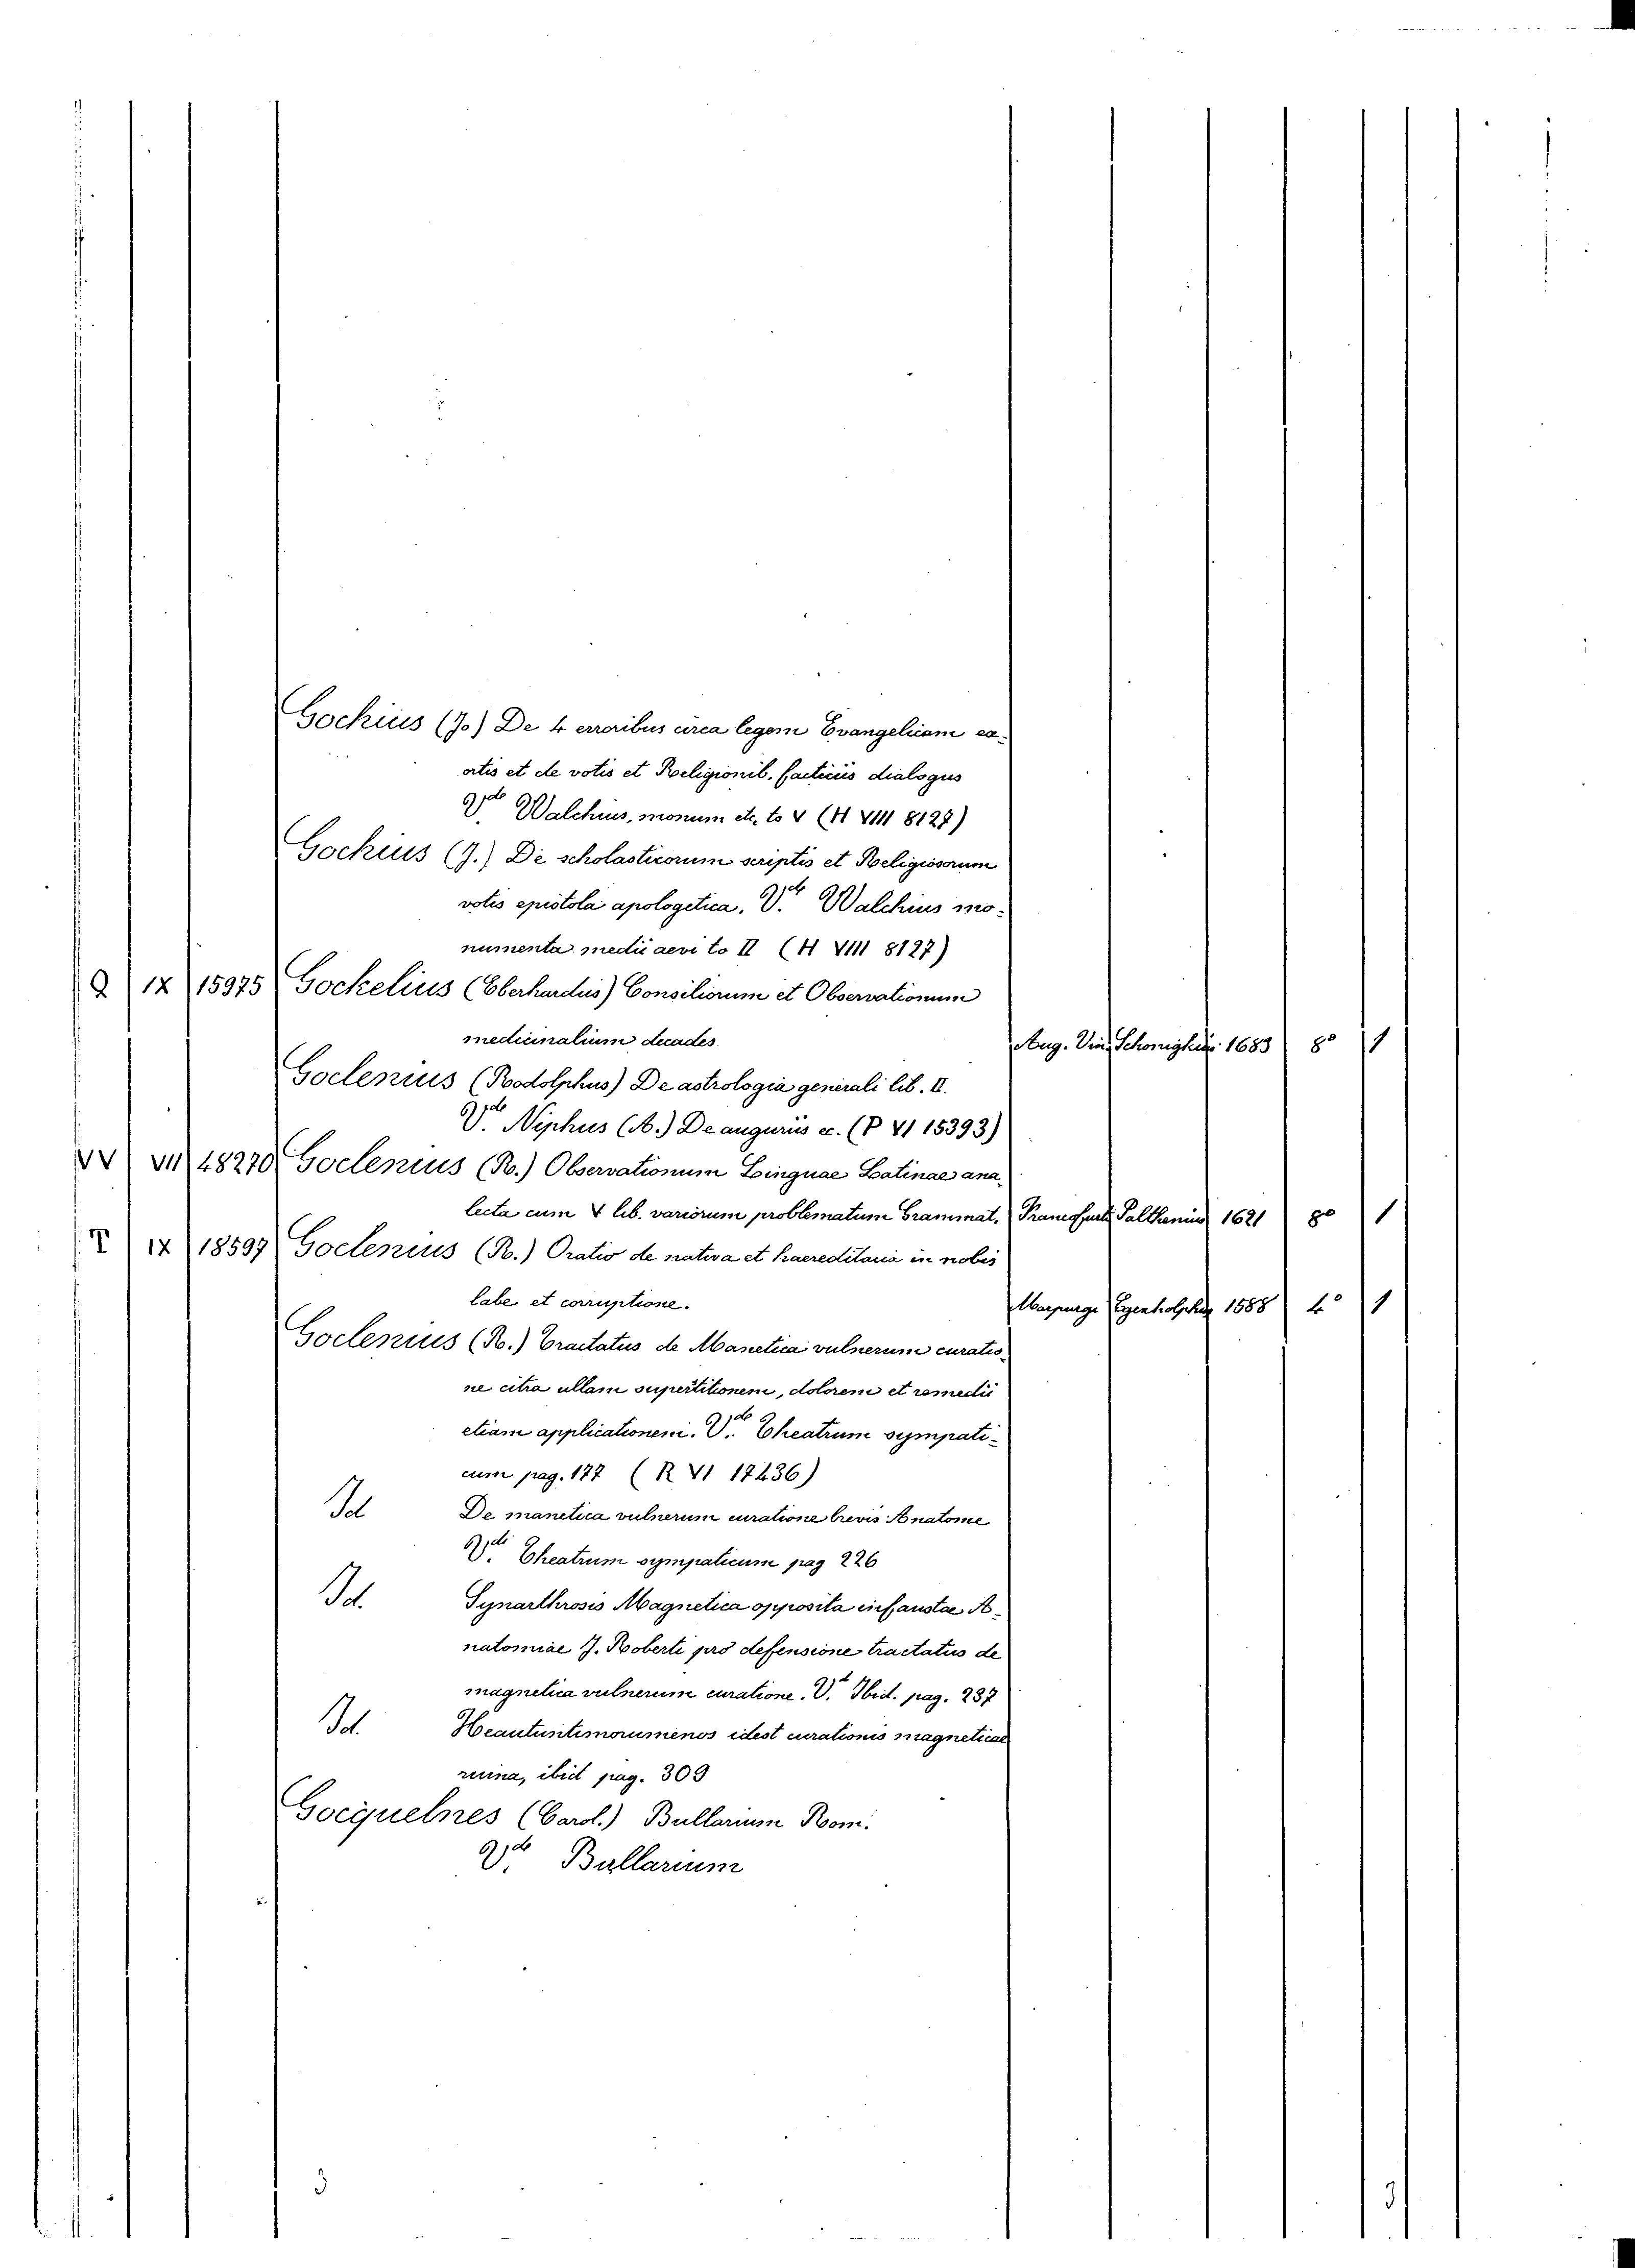 Gochius (Jo) De 4 erroribus circa legem Evangelicam ex-
ortis et de votis et Religionib. facticiis dialogus
Vde Walchius, monum etc. to V (H VIII 8127)
Gochius (J.) De scholasticorum scriptis et Religiosorum
votis epistola apologetica. Vde Walchius mo-
numenta medii aevi to II (H VIII 8127)
Q IX 15975 Gockelius (Eberhardus) Consiliorum et Observationum
medicinalium decades Aug. Vin. Schonigkius 1683 8° 1
Goclenius (Rodolphus) De astrologia generali lib. II.
Vde Niphus (A.) De auguriis ec. (P VI 15393)
VV VII 48270 Goclenius (R.) Observationum Linguae Latinae ana-
lecta cum V lib. variorum problematum Grammat. Francofurti Palthenius 1621 8° 1
T IX 18597 Goclenius (R.) Oratio de nativa et haereditaria in nobis
labe et corruptione. Marpurge Egenholphus 1588 4° 1
Goclenius (R.) Tractatus de Manetica vulnerum curatio-
ne citra ullam supertitionem, dolorem et remedii
etiam applicationem. Vde Theatrum sympati-
cum pag. 177 (R VI 17436)
Id De manetica vulnerum curatione brevis Anatome
Vde Theatrum sympaticum pag 226
Id. Synarthrosis Magnetica opposita infaustae A-
natomiae J. Roberti pro defensione tractatus de
magnetica vulnerum curatione. Ve Ibid. pag. 237
Id. Heautuntimorumenos idest curationis magneticae
ruina, ibid pag. 309
Gocquelnes (Carol.) Bullarium Rom.
Vde Bullarium
3 3